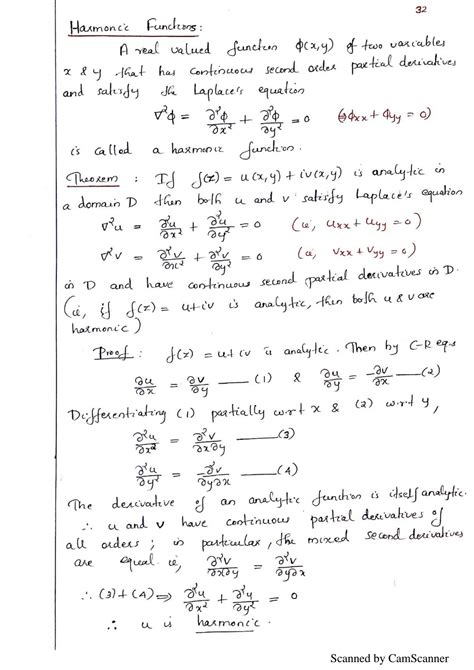 32
Harmonic Functions:
A real valued function ϕ(x,y) of two variables
x & y that has continuous second order partial derivatives
and satisfy the Laplace's equation
∇²ϕ = ∂²ϕ/∂x² + ∂²ϕ/∂y² = 0 (⇒ϕxx + ϕyy = 0)
is called a harmonic function.
Theorem : If f(z) = u(x,y) + iv(x,y) is analytic in
a domain D then both u and v satisfy Laplace's equation
∇²u = ∂²u/∂x² + ∂²u/∂y² = 0 (ie, uxx + uyy = 0)
∇²v = ∂²v/∂x² + ∂²v/∂y² = 0 (ie, vxx + vyy = 0)
in D and have continuous second partial derivatives in D.
(ie, if f(z) = u+iv is analytic, then both u & v are
harmonic)
Proof : f(z) = u+iv is analytic. Then by C-R eqs
∂u/∂x = ∂v/∂y — (1) & ∂u/∂y = -∂v/∂x — (2)
Differentiating (1) partially w.r.t x & (2) w.r.t y,
∂²u/∂x² = ∂²v/∂x∂y — (3)
∂²u/∂y² = -∂²v/∂y∂x — (4)
The derivative of an analytic function is itself analytic.
∴ u and v have continuous partial derivatives of
all orders ; in particular, the mixed second derivatives
are equal ie, ∂²v/∂x∂y = ∂²v/∂y∂x
∴ (3)+(4) ⇒ ∂²u/∂x² + ∂²u/∂y² = 0
∴ u is harmonic.
Scanned by CamScanner